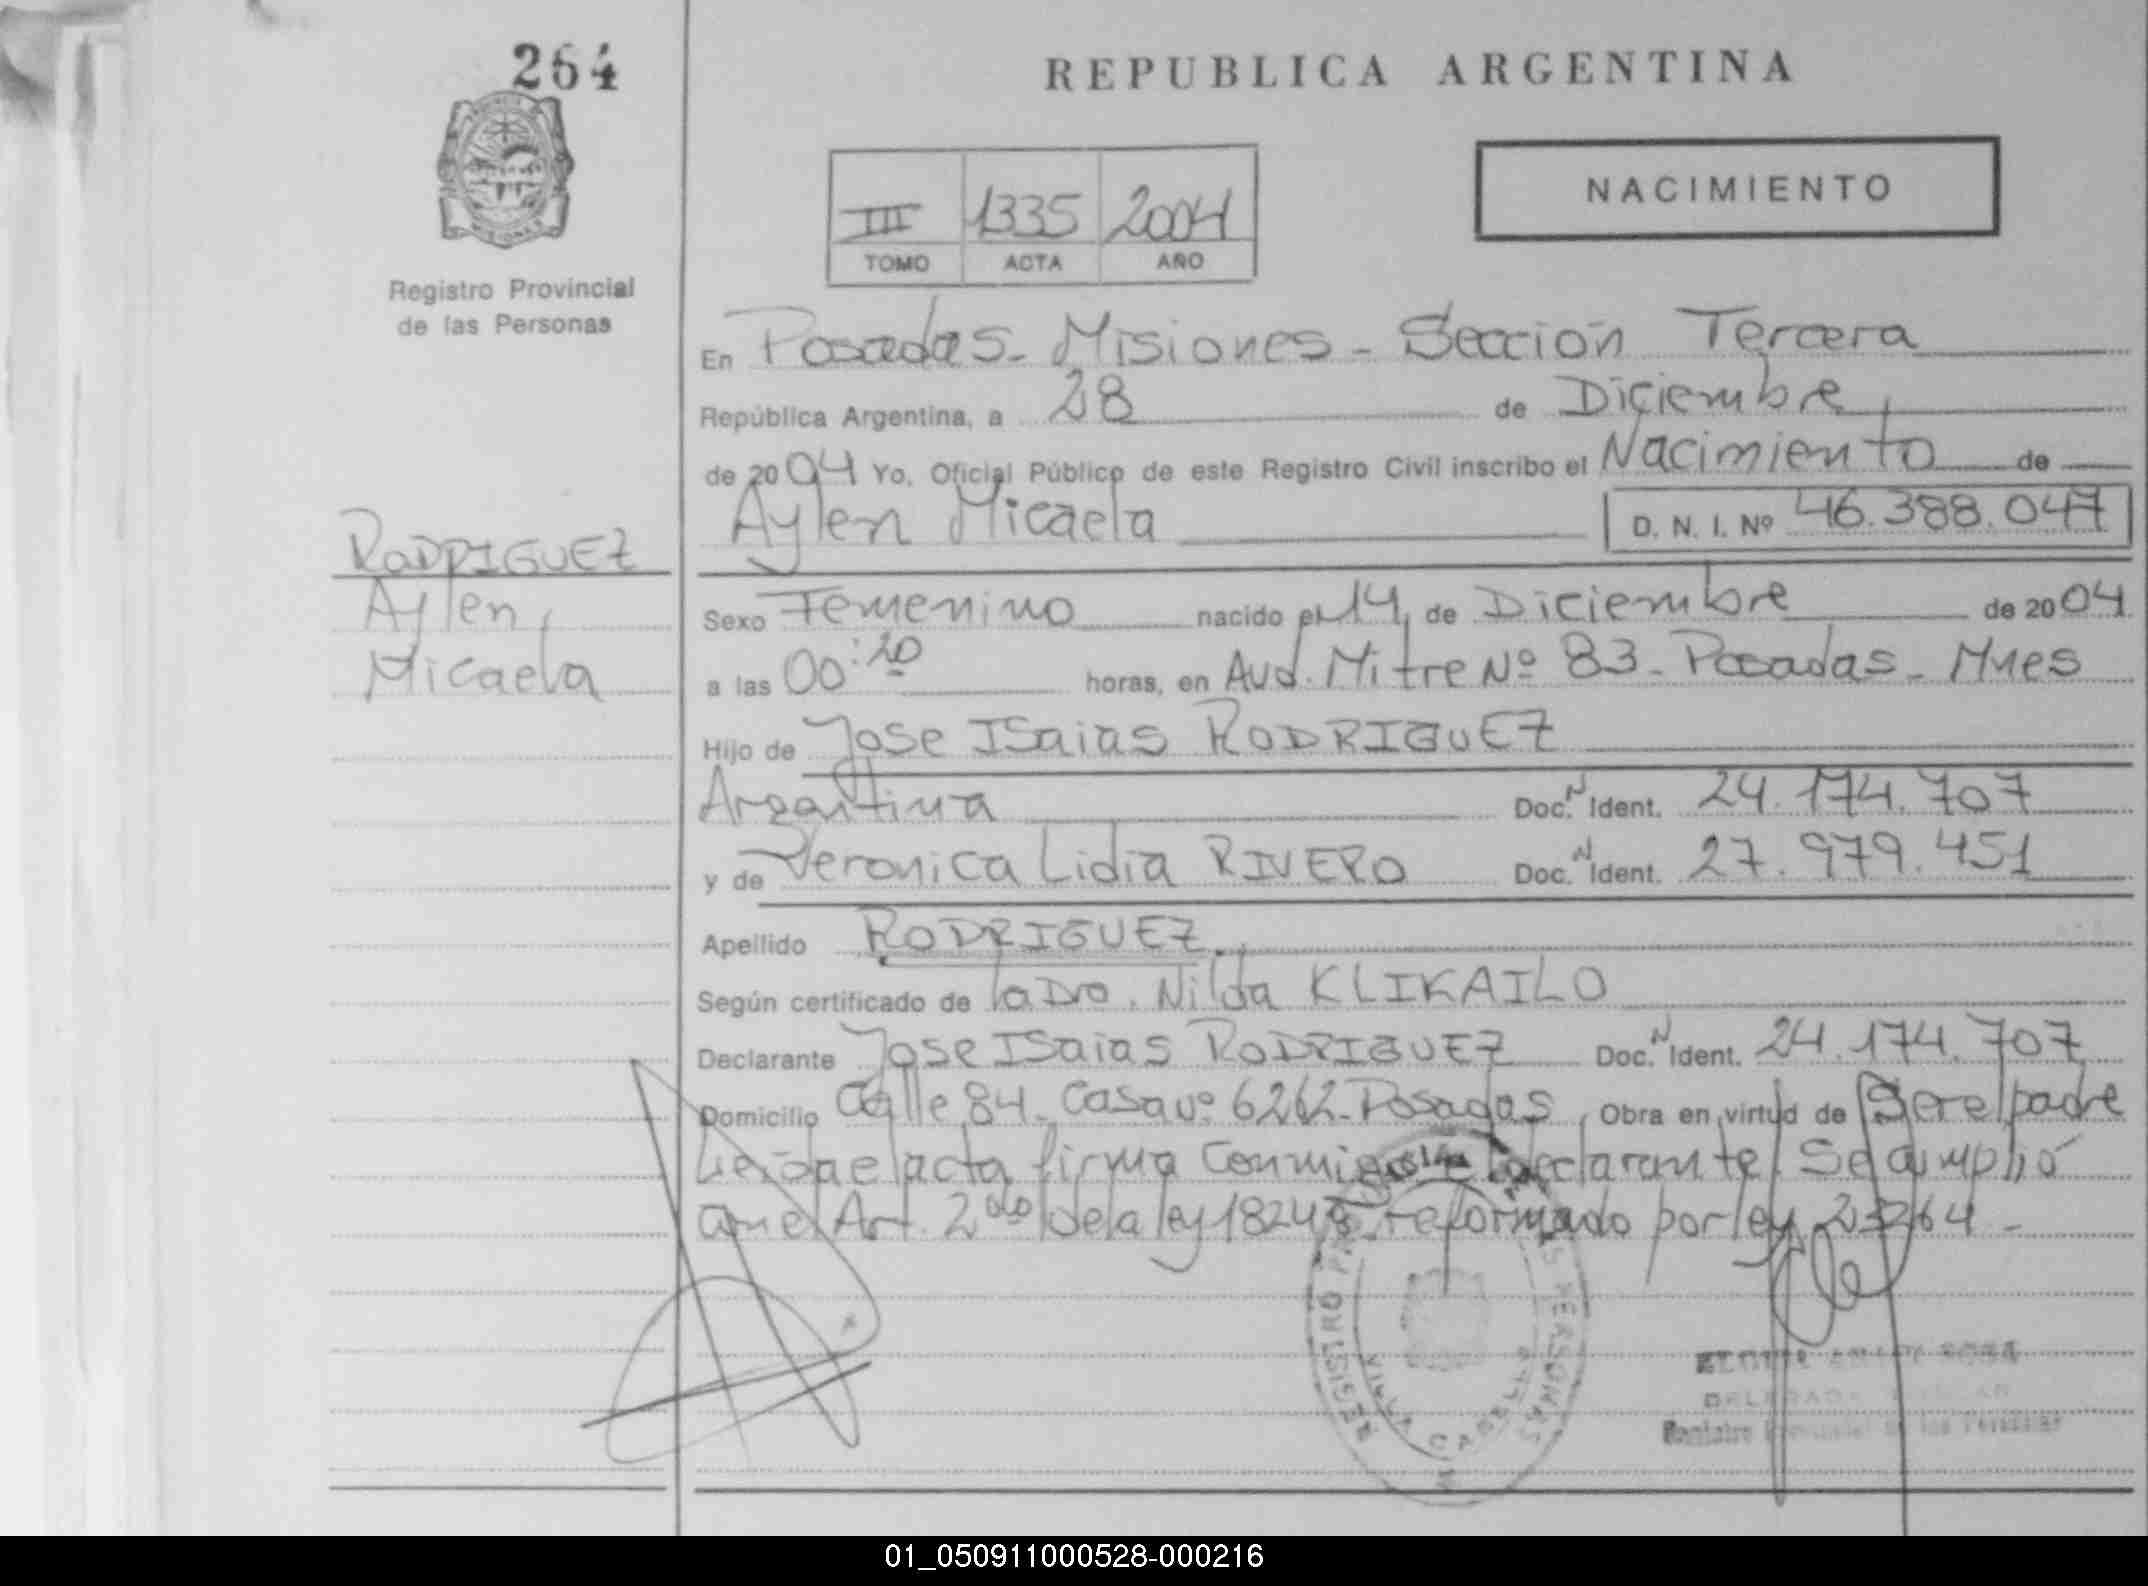 264
REPUBLICA ARGENTINA
NACIMIENTO
III 1335 2004
TOMO ACTA AÑO
Registro Provincial
de las Personas
En Posadas - Misiones - Sección Tercera
República Argentina, a 28 de Diciembre
de 2004 Yo, Oficial Público de este Registro Civil inscribo el Nacimiento de
Aylen Micaela D. N. I. Nº 46.388.047
RODRIGUEZ
Aylen
Micaela
Sexo Femenino nacido el 14 de Diciembre de 2004
a las 00:20 horas, en Avd. Mitre Nº 83 - Posadas - Mnes
Hijo de Jose ISaias RODRIGUEZ
Argentina Doc. N Ident. 24.174.707
y de Veronica Lidia RIVERO Doc. N Ident. 27.979.451
Apellido RODRIGUEZ
Según certificado de la Dra. Nilda KLIKAILO
Declarante Jose ISaias RODRIGUEZ Doc. N Ident. 24.174.707
Domicilio Calle 84 - Casa Nº 6262 - Posadas Obra en virtud de Ser el padre
Leida el acta firma Conmigo el declarante Se cumplió
con el Art. 2do de la ley 18248 reformado por ley 23264 -
REGISTRO PERSONAS
VILLA CABELLO
Registro Provincial de las Personas
01_050911000528-000216